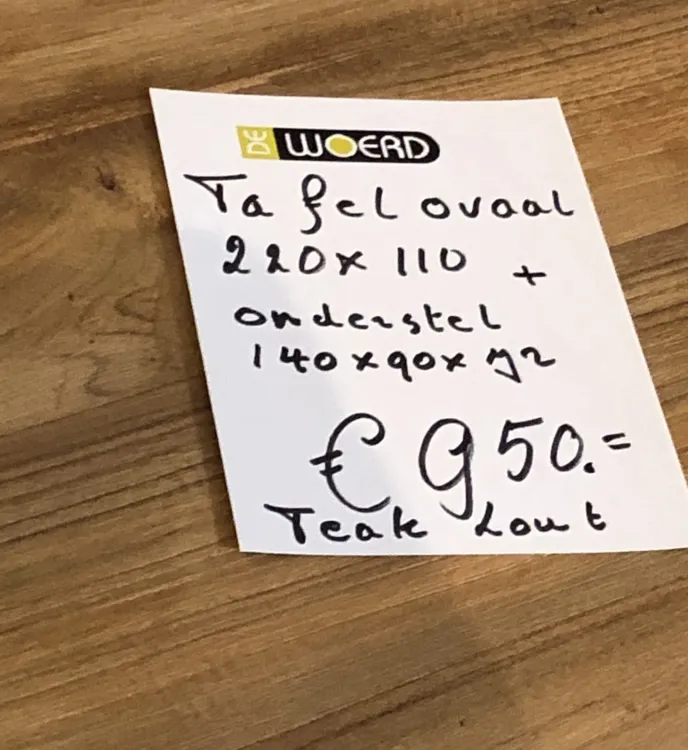 DE WOERD
Tafel ovaal
220 x 110 +
onderstel
140 x 90 x 72
€ 950.=
Teak hout